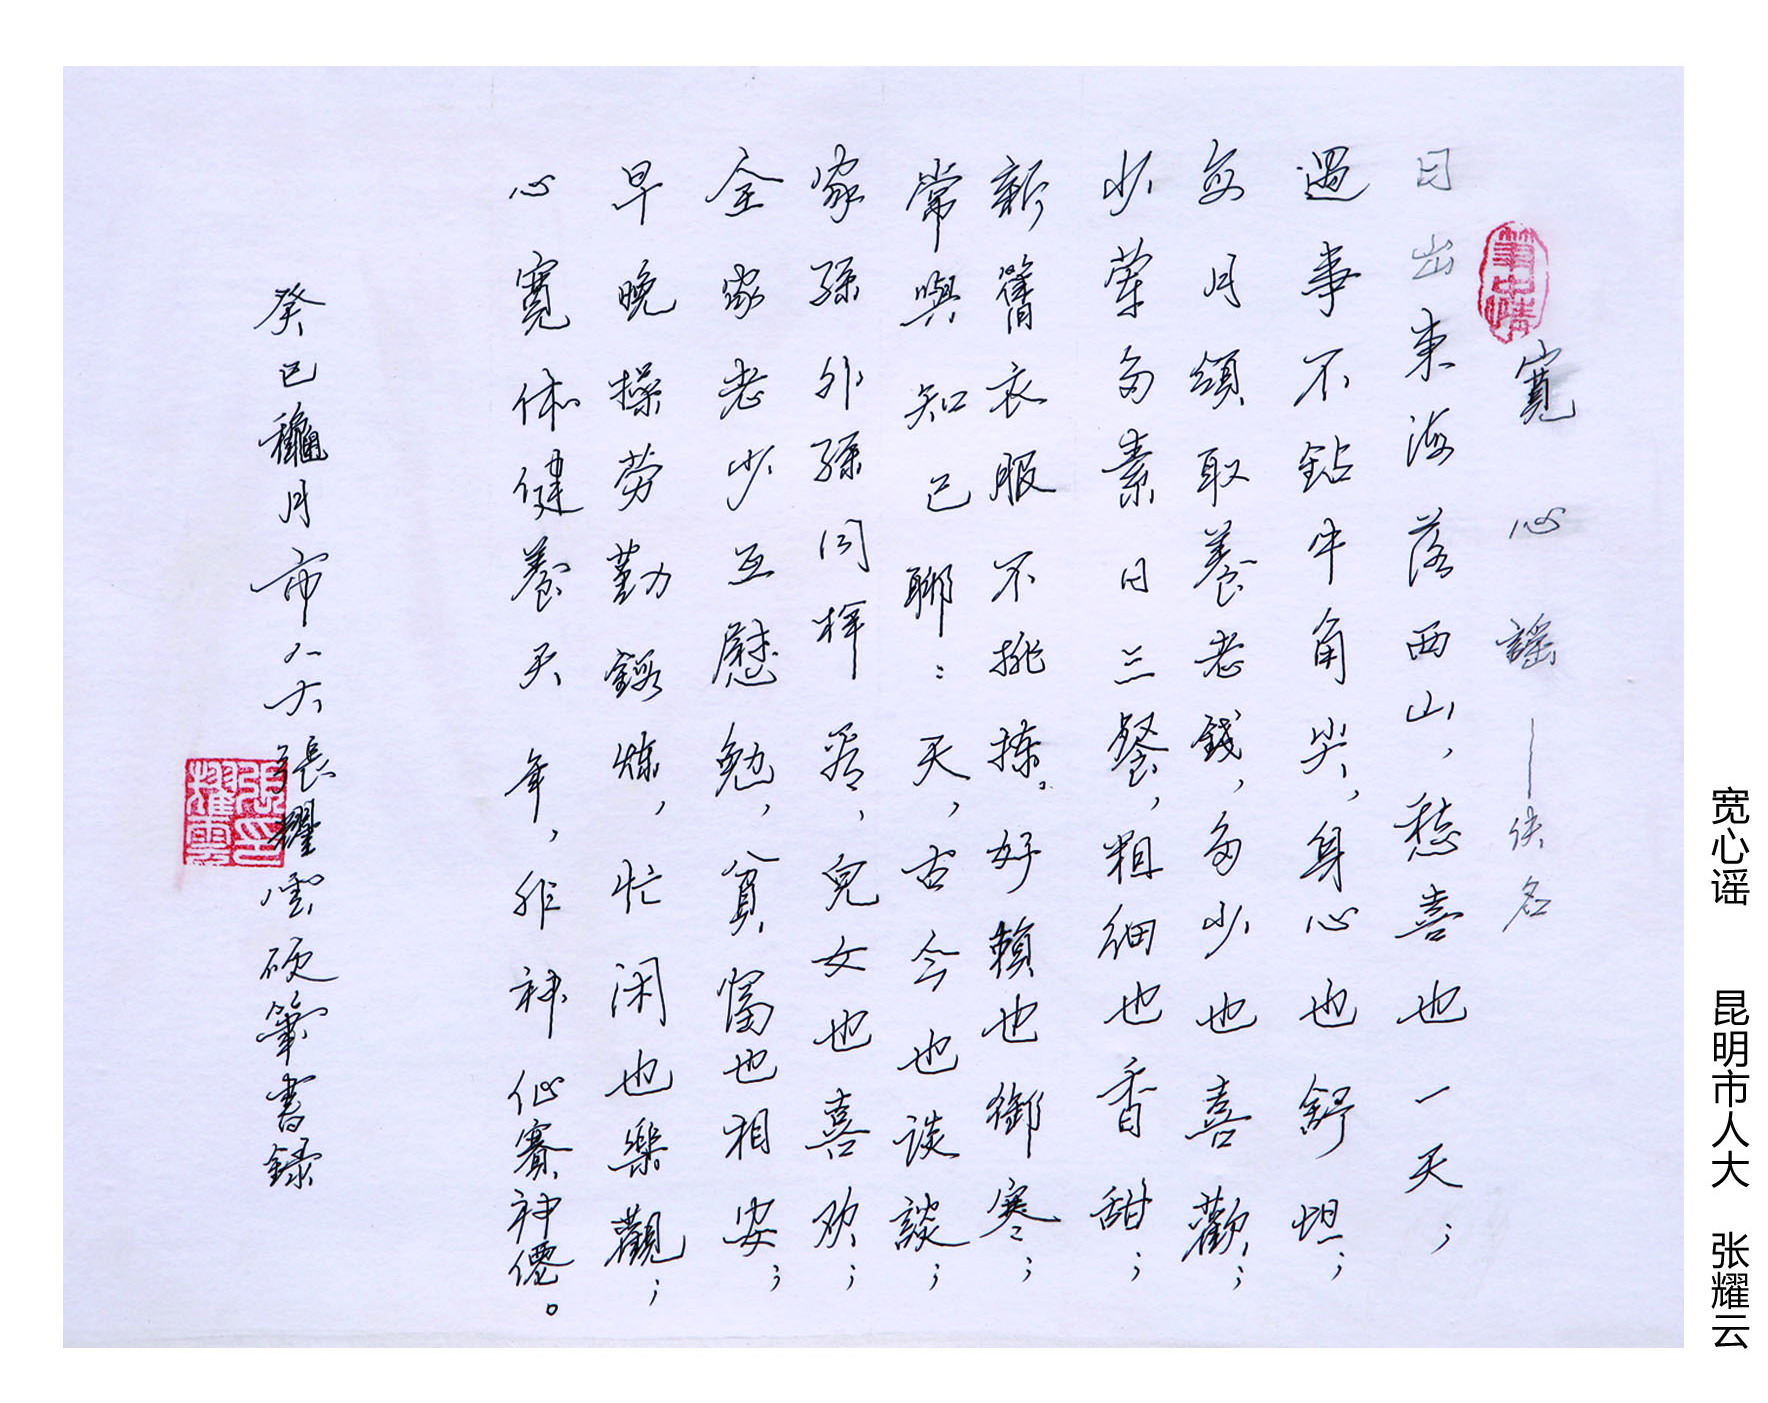 筆中情
寬心謠——佚名
日出東海落西山，愁喜也一天；
遇事不钻牛角尖，身心也舒坦；
每月領取養老錢，多少也喜歡；
少荤多素日三餐，粗细也香甜；
新舊衣服不挑揀。好賴也御寒；
常與知己聊：天，古今也谈談；
家孫外孫同样看，兒女也喜欢；
全家老少互慰勉，貧富也相安；
早晚操劳勤鍛炼，忙闲也樂觀；
心寬体健養天年，非神仙賽神僊。
癸巳龝月市人大張耀雲硬筆書録
張耀雲印
宽心谣 昆明市人大 张耀云